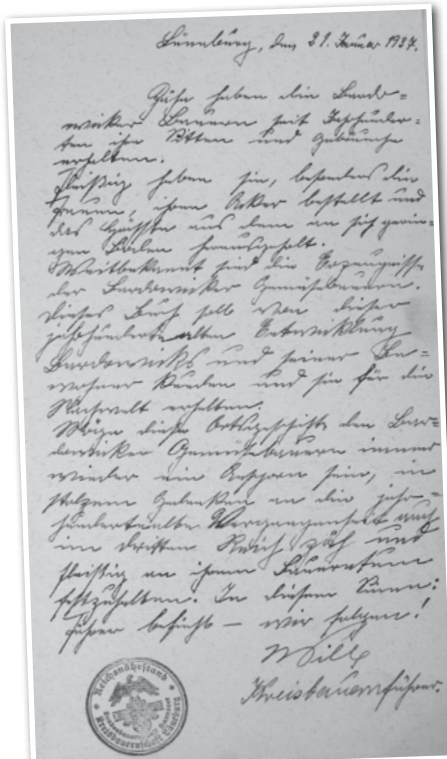 Lüneburg, den 21. Januar 1937.
Zähe haben die Bardo-
wicker Bauern seit Jahrhunder-
ten ihre Sitten und Gebräuche
erhalten.
Fleißig haben sie, besonders die
Frauen, ihren Acker bestellt und
das Höchste aus dem an sich gerin-
gen Boden herausgeholt.
Weitbekannt sind die Erzeugnisse
der Bardowicker Gemüsebauern.
Dieses Buch soll von dieser
jahrhundertealten Entwicklung
Bardowicks und seiner Be-
wohner künden und sie für die
Nachwelt erhalten.
Möge diese Ortsgeschichte den Bar-
dowicker Gemüsebauern immer
wieder ein Ansporn sein, in
stolzem Gedenken an die jahr-
hundertealte Vergangenheit auch
im dritten Reich zäh und
fleißig an ihrem Bauerntum
festzuhalten. In diesem Sinne:
Führer befiehl – wir folgen!
Mille
Kreisbauernführer.
Reichsnährstand
Kreisbauernschaft Lüneburg